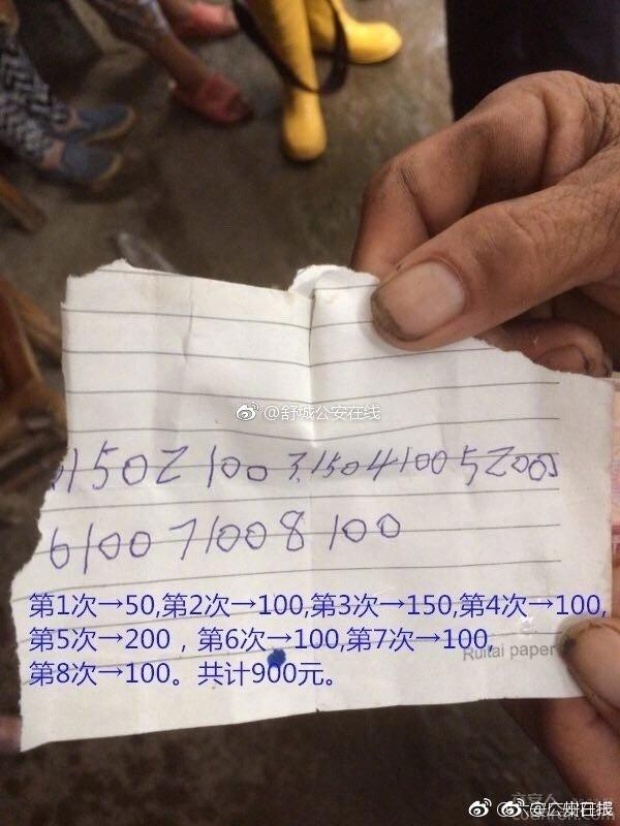 @舒城公安在线
1502 100 3.150 4100 5200
6100 7100 8 100
第1次→50,第2次→100,第3次→150,第4次→100,
第5次→200，第6次→100,第7次→100,
第8次→100。共计900元。
Ruitai paper